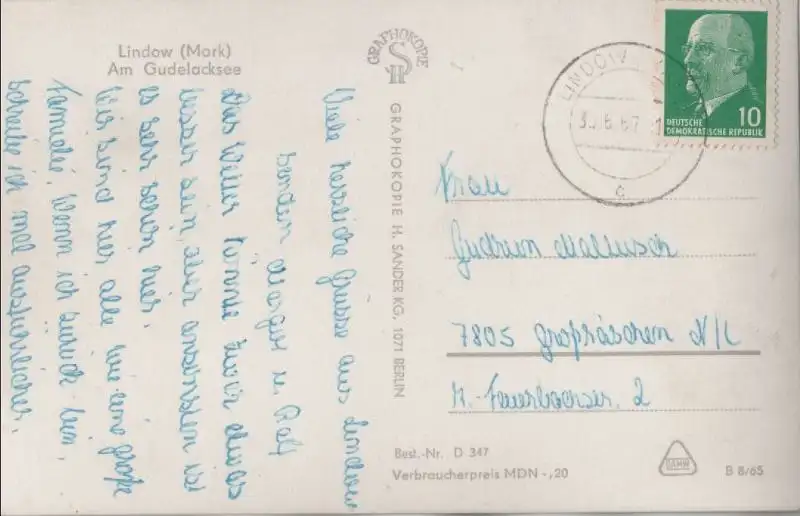 Lindow (Mark)
Am Gudelacksee
GRAPHOKOPIE
HS
GRAPHOKOPIE H. SANDER KG, 1071 BERLIN
Viele herzliche Grüsse aus Lindow
senden Margit u. Ralf
Das Wetter könnte zwar etwas
besser sein, aber ansonsten ist
es sehr schön hier.
Wir sind hier alle wie eine große
Familie. Wenn ich zurück bin,
schreibe ich mal ausführlicher.
LINDOW
30.6.67
c
10
DEUTSCHE
DEMOKRATISCHE REPUBLIK
Frau
Gudrun
7805 Großräschen N/L
Feuerbachstr. 2
Best.-Nr. D 347
Verbraucherpreis MDN -,20
DAMW
B 8/65